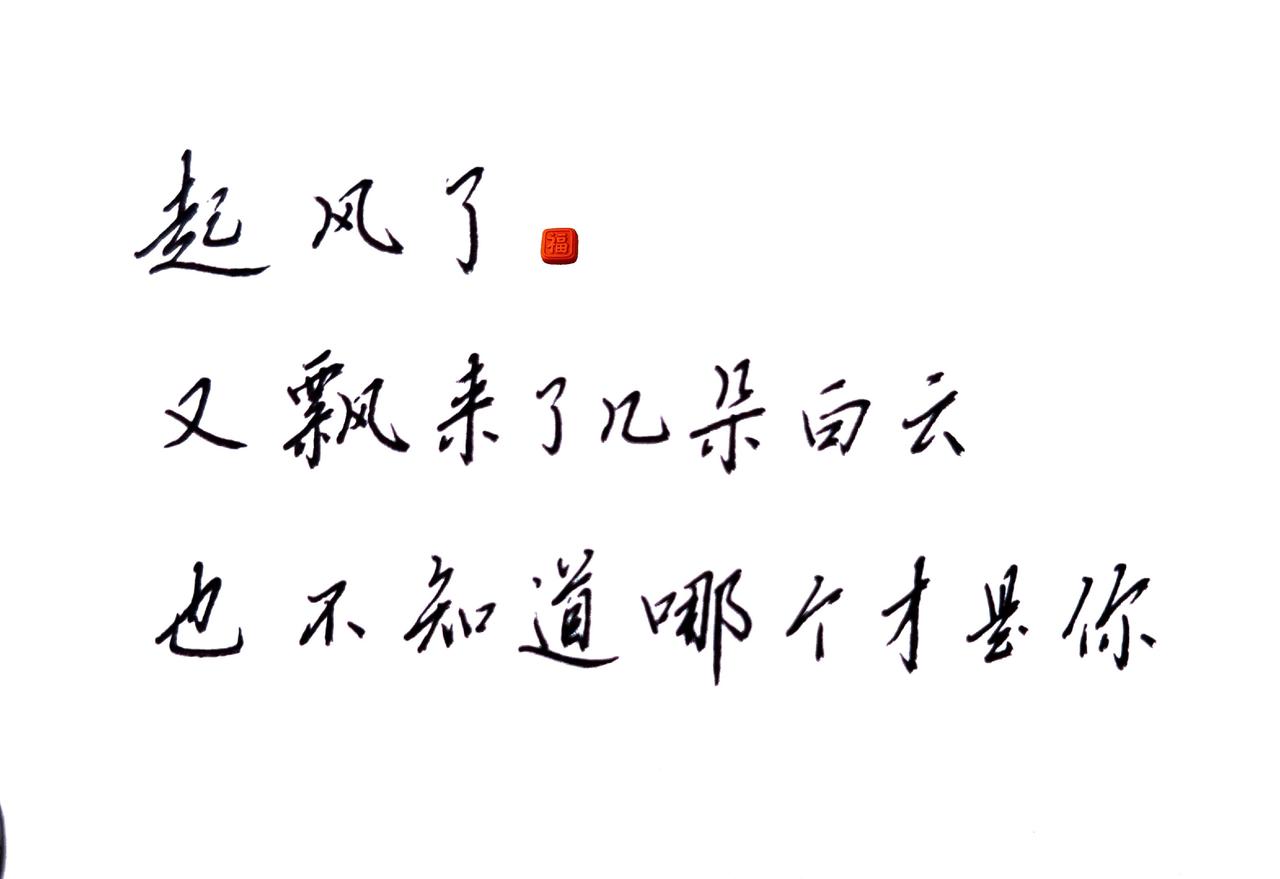 起风了 福
又飘来了几朵白云
也不知道哪个才是你